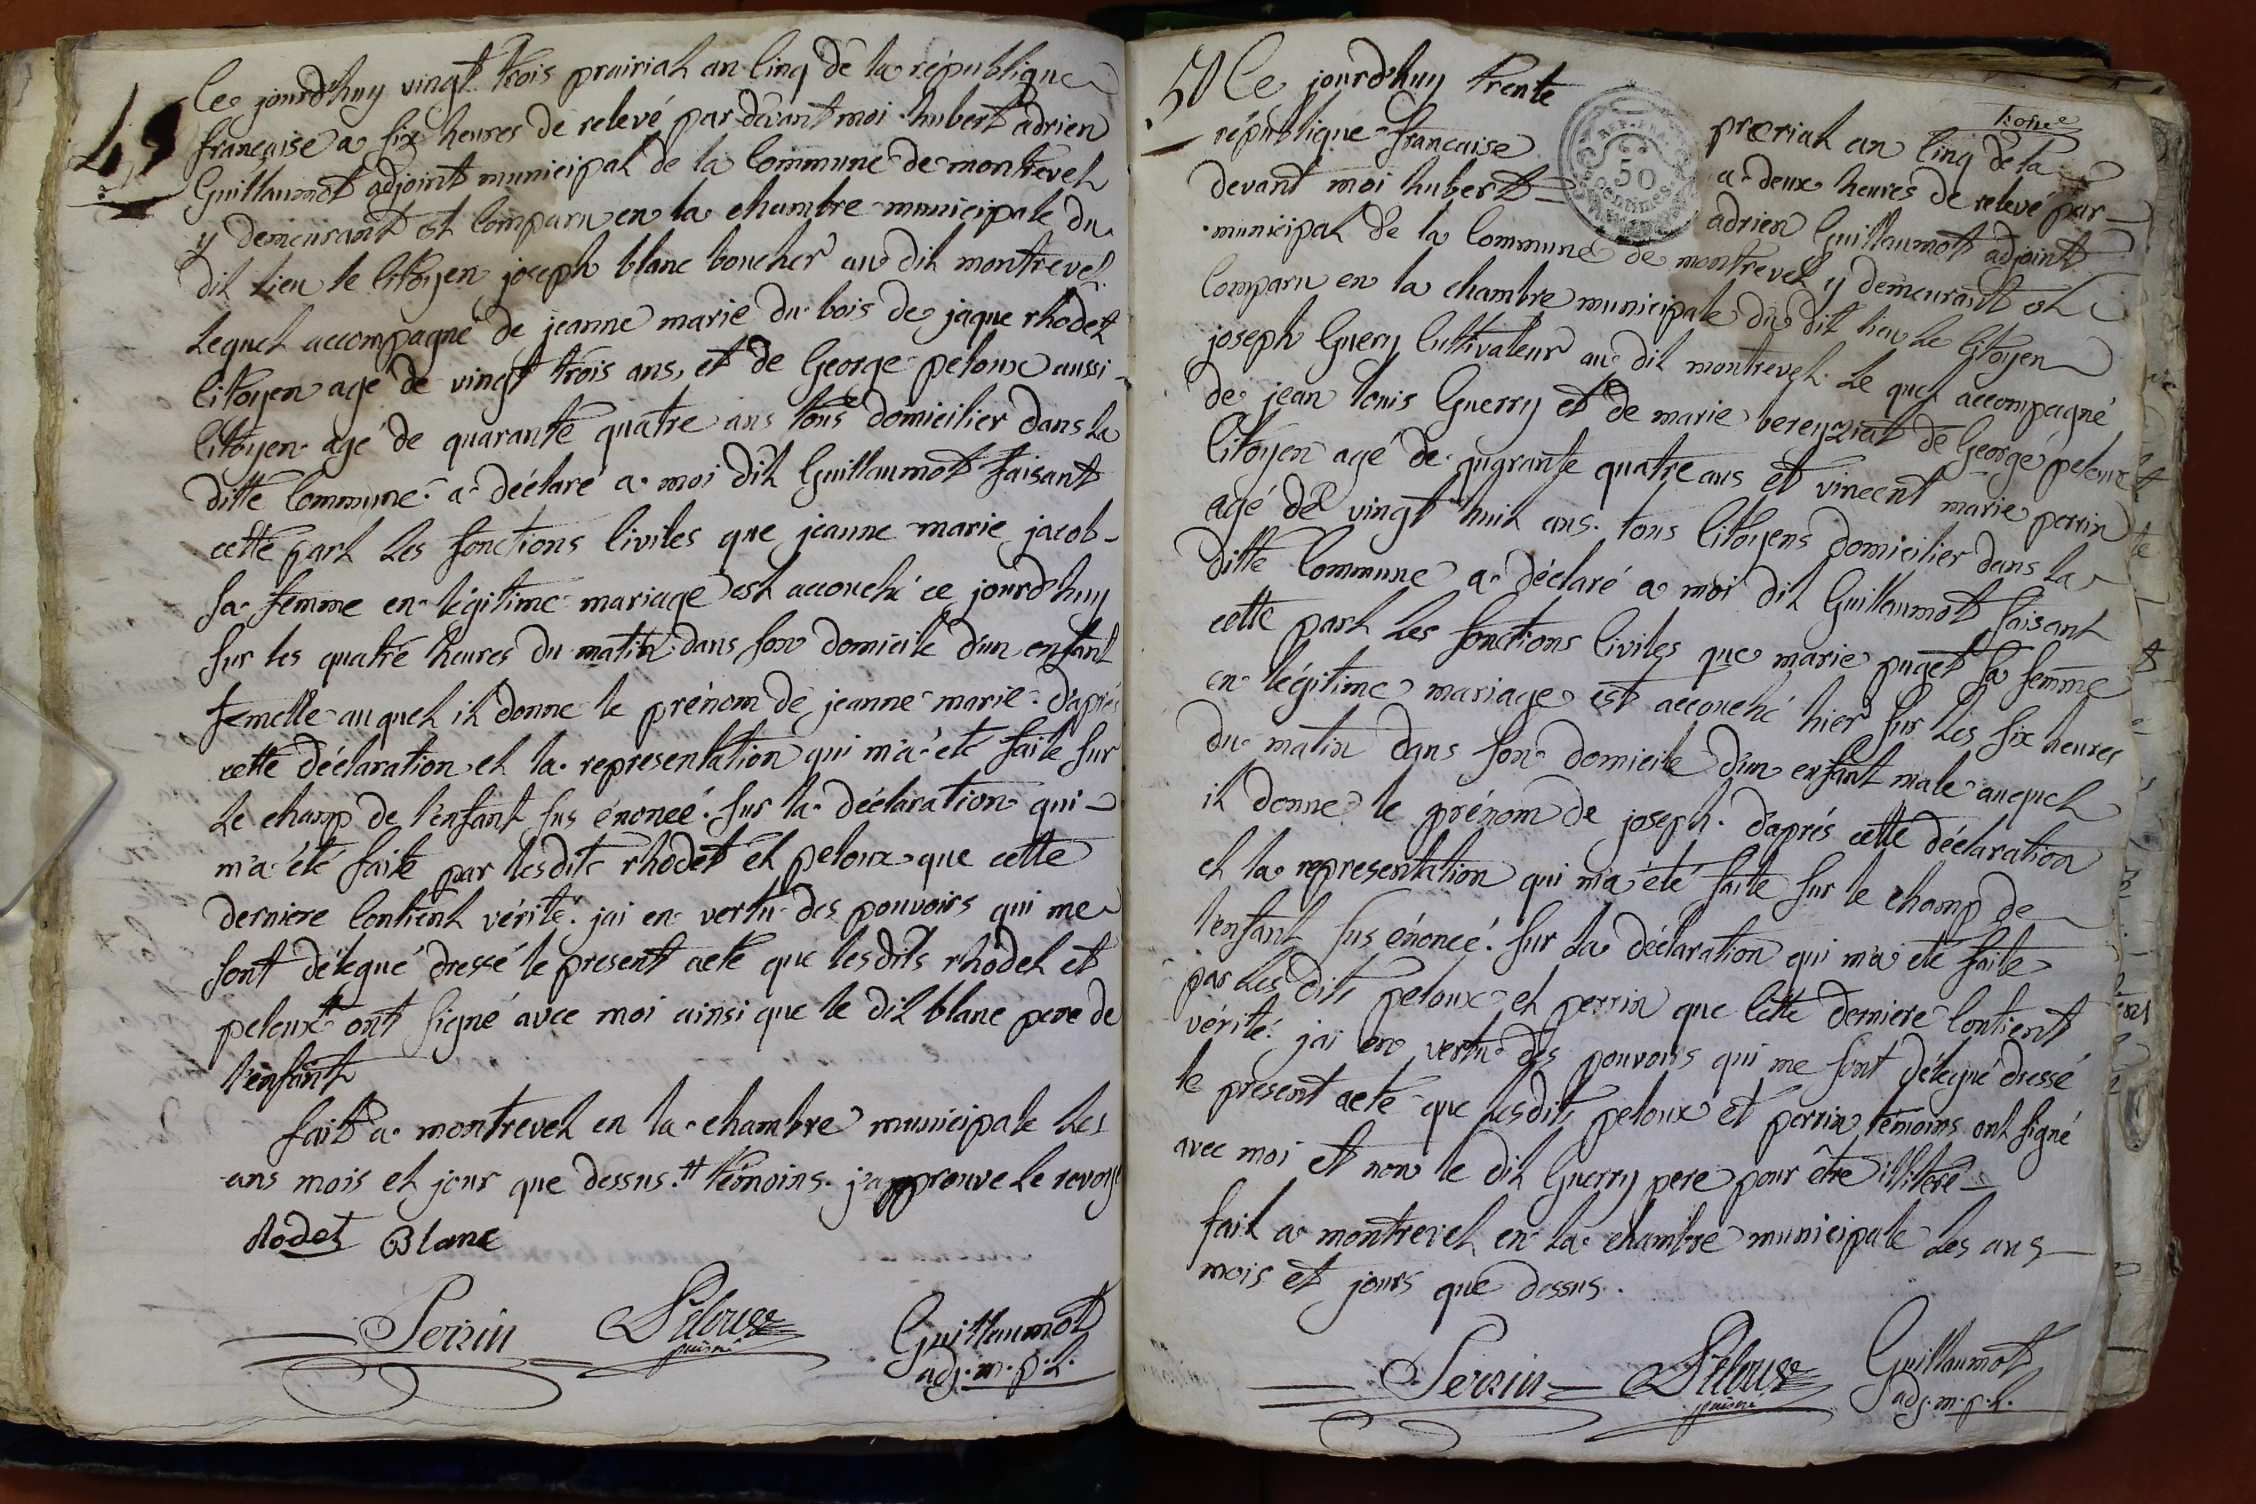 49
Ce jourd'huy vingt trois prairial an Cinq de la république
francaise a six heures de relevé par devant moi hubert adrien
Guillaumot adjoint municipal de la Commune de montrevel
y demeurant est Comparu en la chambre municipale du
dit lieu le Citoyen joseph blanc boucher au dit montrevel
Lequel accompagné de jeanne marie du bois de jaque rhodet
Citoyen agé de vingt trois ans, et de George peloux aussi
Citoyen agé de quarante quatre ans tous domicilier dans la
ditte Commune a déclaré a moi dit Guillaumot faisant
cette part les fonctions Civiles que jeanne marie jacob
sa femme en légitime mariage est accouché ce jourd'huy
sur les quatre heures du matin dans son domicile d'un enfant
femelle auquel il donne le prénom de jeanne marie. d'aprés
cette déclaration et la representation qui m'a été faite sur
le champ de l'enfant sus énoncé. sur la déclaration qui
m'a été faite par lesdits rhodet et peloux que cette
derniere Contient vérité. jai en vertu des pouvoirs qui me
sont délegué dressé le present acte que lesdits rhodet et
peloux # ont signé avec moi ainsi que le dit blanc pere de
l'enfant
fait a montrevel en la chambre municipale les
ans mois et jour que dessus. # témoins. japprouve le renvoy
Rodet Blanc
Perrin Peloux
puisné
Guillaumot
adj. m. p. l.
50
REP. FRA.
50
centimes
Ce jourd'huy trente præriat an Cinq de la
république francaise a deux heures de relevé par
devant moi hubert adrien Guillaumot adjoint
municipal de la Commune de montrevel y demeurant est
Comparu en la chambre municipale du dit lieu le Citoyen
joseph Guery Cultivateur au dit montrevel. Le quel accompagné
de jean louis Guerry et de marie vereyziat de George peloux
Citoyen agé de quarante quatre ans et vincent marie perrin
agé de vingt huit ans. tous Citoyens domicilier dans la
ditte Commune a déclaré a moi dit Guillaumot faisant
cette part les fonctions Civiles que marie puget sa femme
en légitime mariage est accouché hier sur les six heures
du matin dans son domicile d'un enfant male auquel
il donne le prénom de joseph. d'aprés cette déclaration
et la representation qui m'a été faite sur le champ de
l'enfant sus énoncé. sur la déclaration qui m'a été faite
par les dits peloux et perrin que Cette derniere Contient
vérité. jai en vertu des pouvoirs qui me sont délegué dressé
le present acte que lesdits peloux et perrin témoins ont signé
avec moi et non le dit Guerry pere pour être illiteré
fait a montrevel en la chambre municipale les ans
mois et jours que dessus.
Perrin Peloux
puisné
Guillaumot
adj. m. p. l.